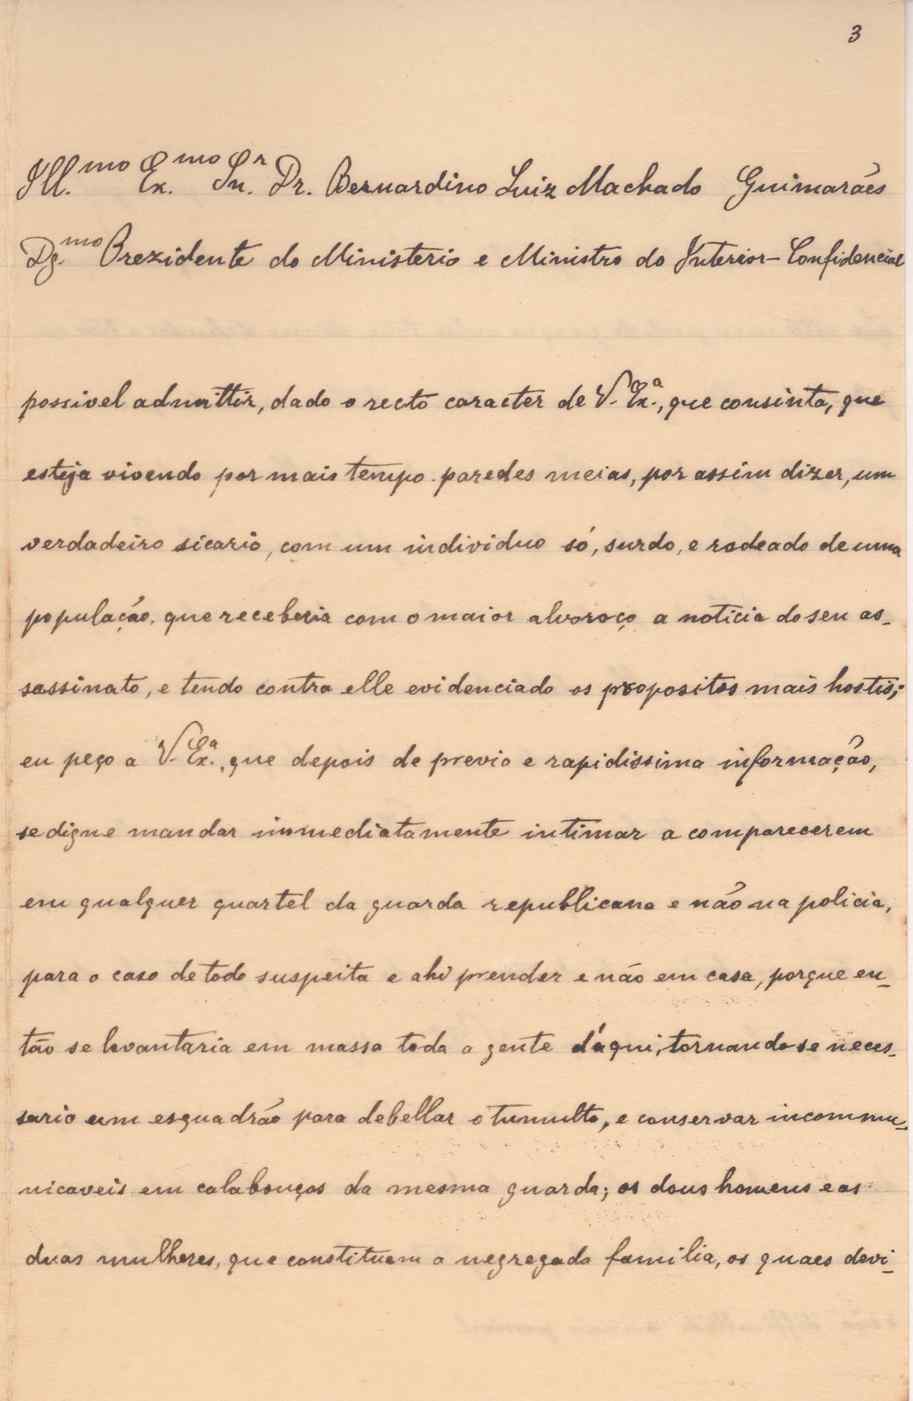 3
Ill.mo Ex.mo Snr. Dr. Bernardino Luiz Machado Guimarães
Dg.mo Prezidente do Ministerio e Ministro do Interior - Confidencial
possivel admittir, dado o recto caracter de V. Ex.ª, que consinta, que
esteja vivendo por mais tempo paredes meias, por assim dizer, um
verdadeiro sicario, com um individuo só, surdo, e rodeado de uma
população, que receberia com o maior alvoroço a noticia do seu as-
sassinato, e tendo contra elle evidenciado os propositos mais hostis;
eu peço a V. Ex.ª, que depois de previa e rapidissima informação,
se digne mandar immediatamente intimar a comparecerem
em qualquer quartel da guarda republicana e não na policia,
para o caso de todo suspeita e ahi prender e não em casa, porque en-
tão se levantaria em massa toda a gente d'aqui, tornando-se neces-
sario um esquadrão para debellar o tumulto, e conservar incommu-
nicaveis em calabouços da mesma guarda; os dous homens e as
duas mulheres, que constituem a negregada familia, os quaes devi-